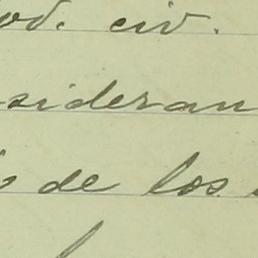 od. civ.
sideran
o de los